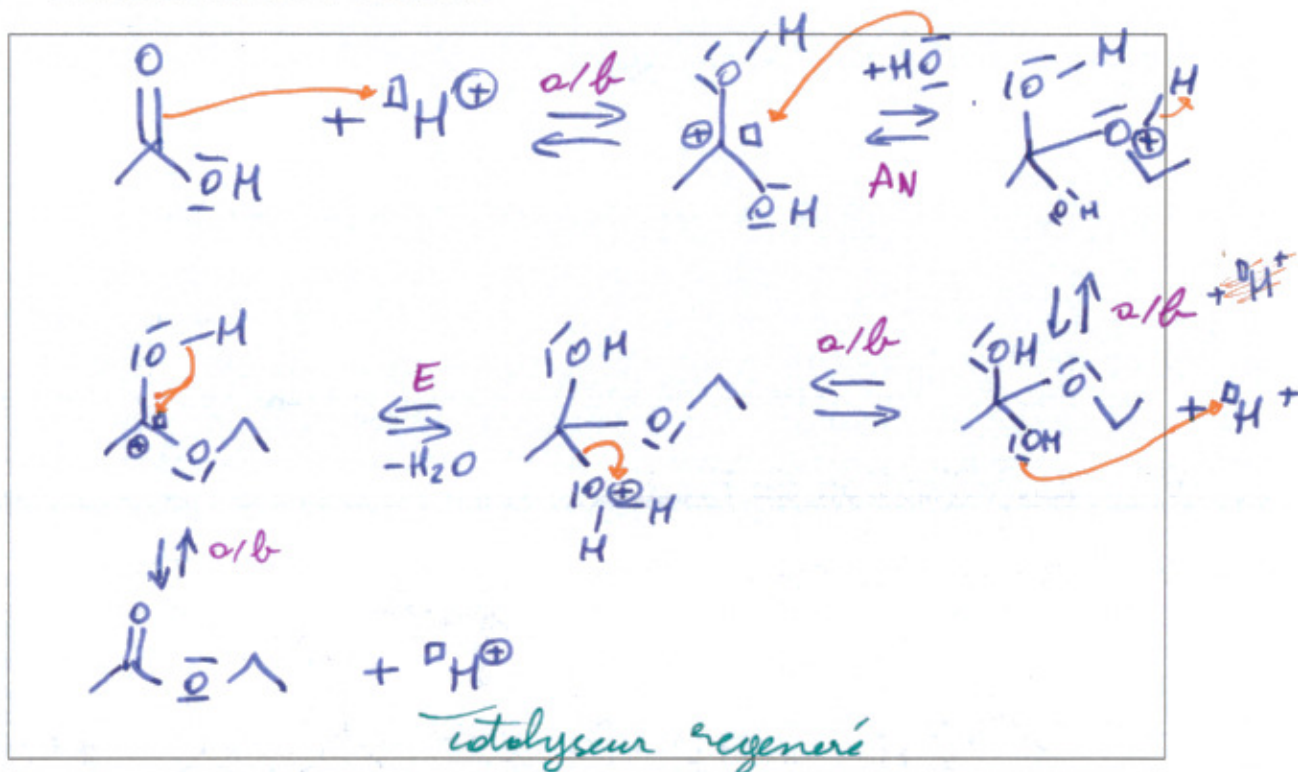 O
O H + H + a/b O H + O H + H O AN O H O + H O H
O H + H E - H2O O H O O + H H a/b O H O O H + H + a/b + H +
a/b
O O + H +
catalyseur regeneré